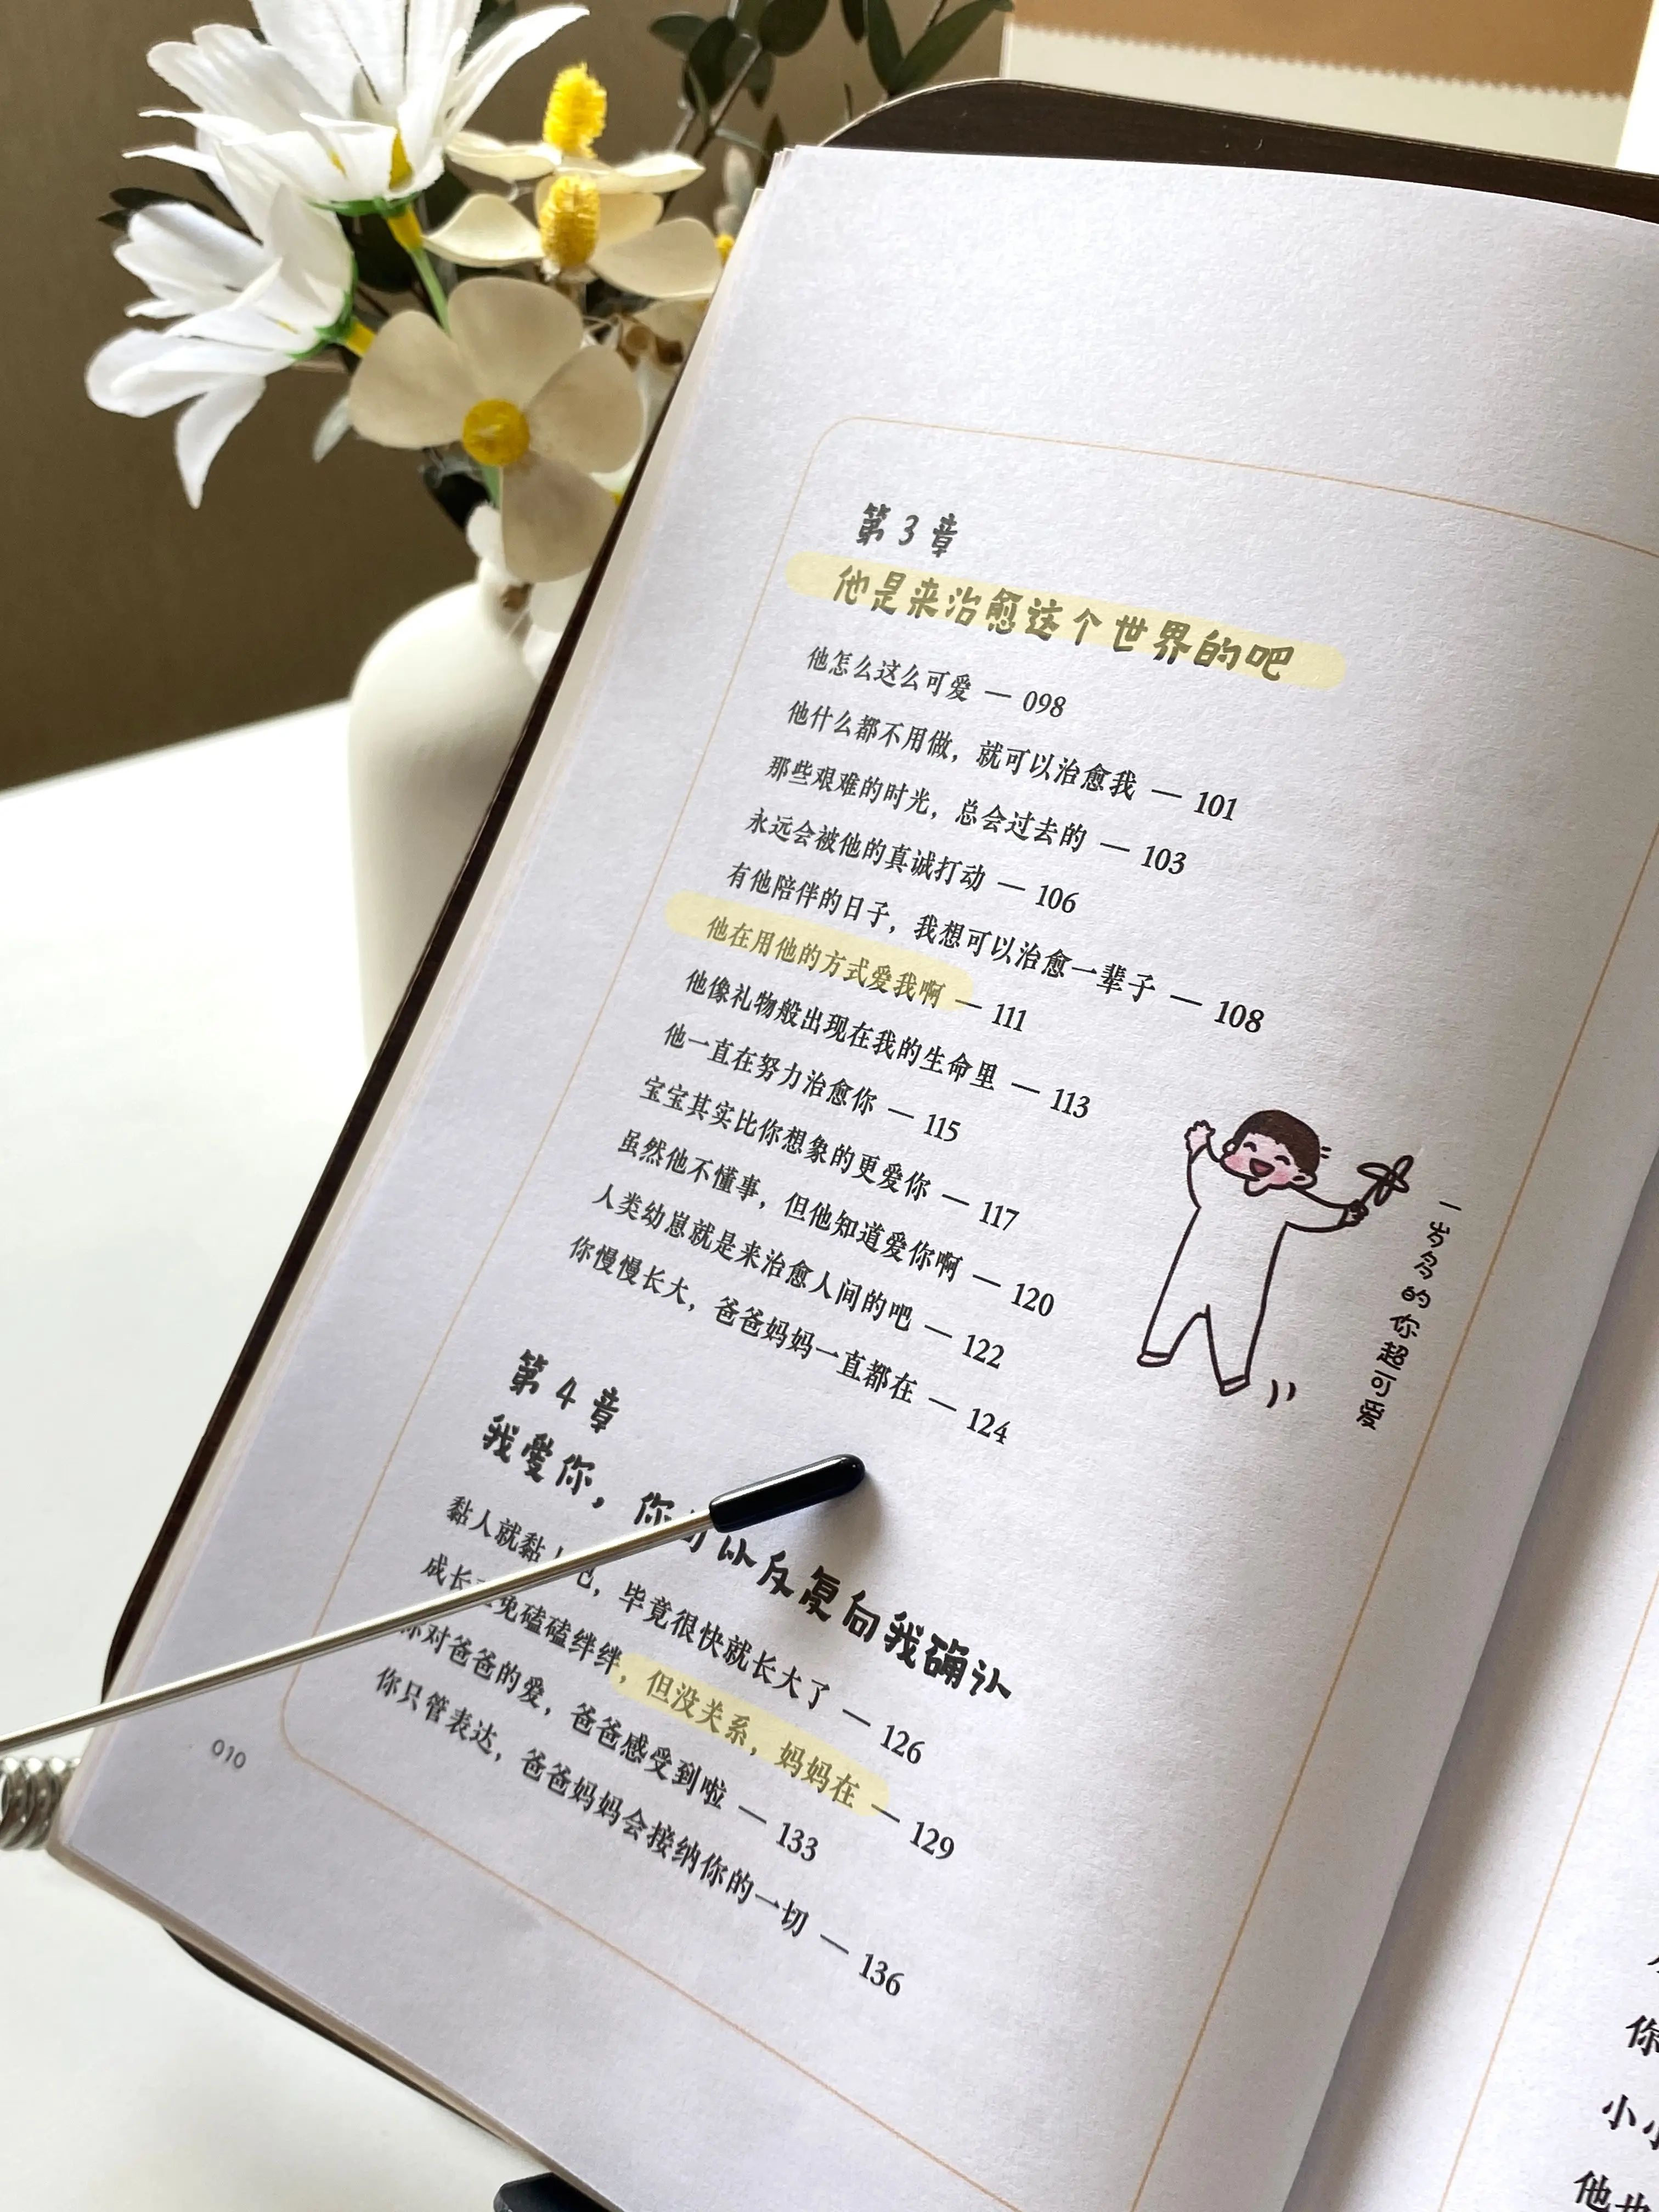 第3章
他是来治愈这个世界的吧
他怎么这么可爱 — 098
他什么都不用做，就可以治愈我 — 101
那些艰难的时光，总会过去的 — 103
永远会被他的真诚打动 — 106
有他陪伴的日子，我想可以治愈一辈子 — 108
他在用他的方式爱我啊 — 111
他像礼物般出现在我的生命里 — 113
他一直在努力治愈你 — 115
宝宝其实比你想象的更爱你 — 117
虽然他不懂事，但他知道爱你啊 — 120
人类幼崽就是来治愈人间的吧 — 122
你慢慢长大，爸爸妈妈一直都在 — 124
一岁多的你超可爱
第4章
我爱你，你可以反复向我确认
黏人就黏人吧，毕竟很快就长大了 — 126
成长 免磕磕绊绊，但没关系，妈妈在 — 129
你对爸爸的爱，爸爸感受到啦 — 133
你只管表达，爸爸妈妈会接纳你的一切 — 136
010
你
小小
他也